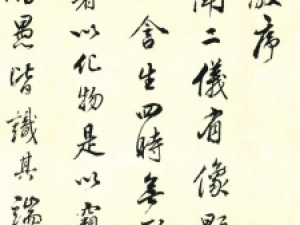 教序
聞二儀有像顯
含生四時無形
暑以化物是以窺
愚皆識其端